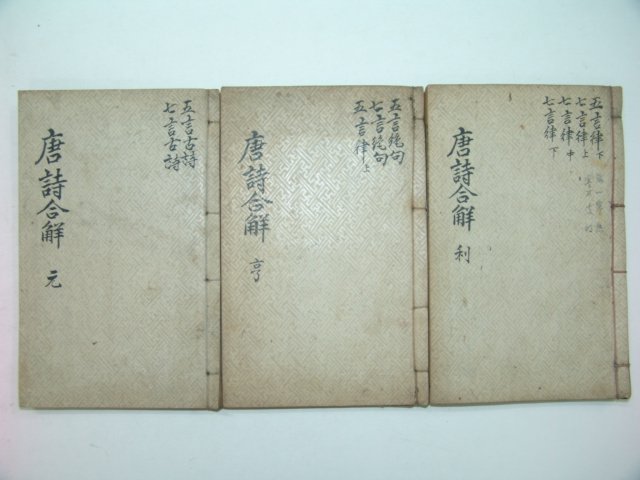 五言古詩
七言古詩
唐詩合解 元
五言絶句
七言絶句
五言律上
唐詩合解 亨
五言律下
七言律上
七言律中
七言律下
唐詩合解 利